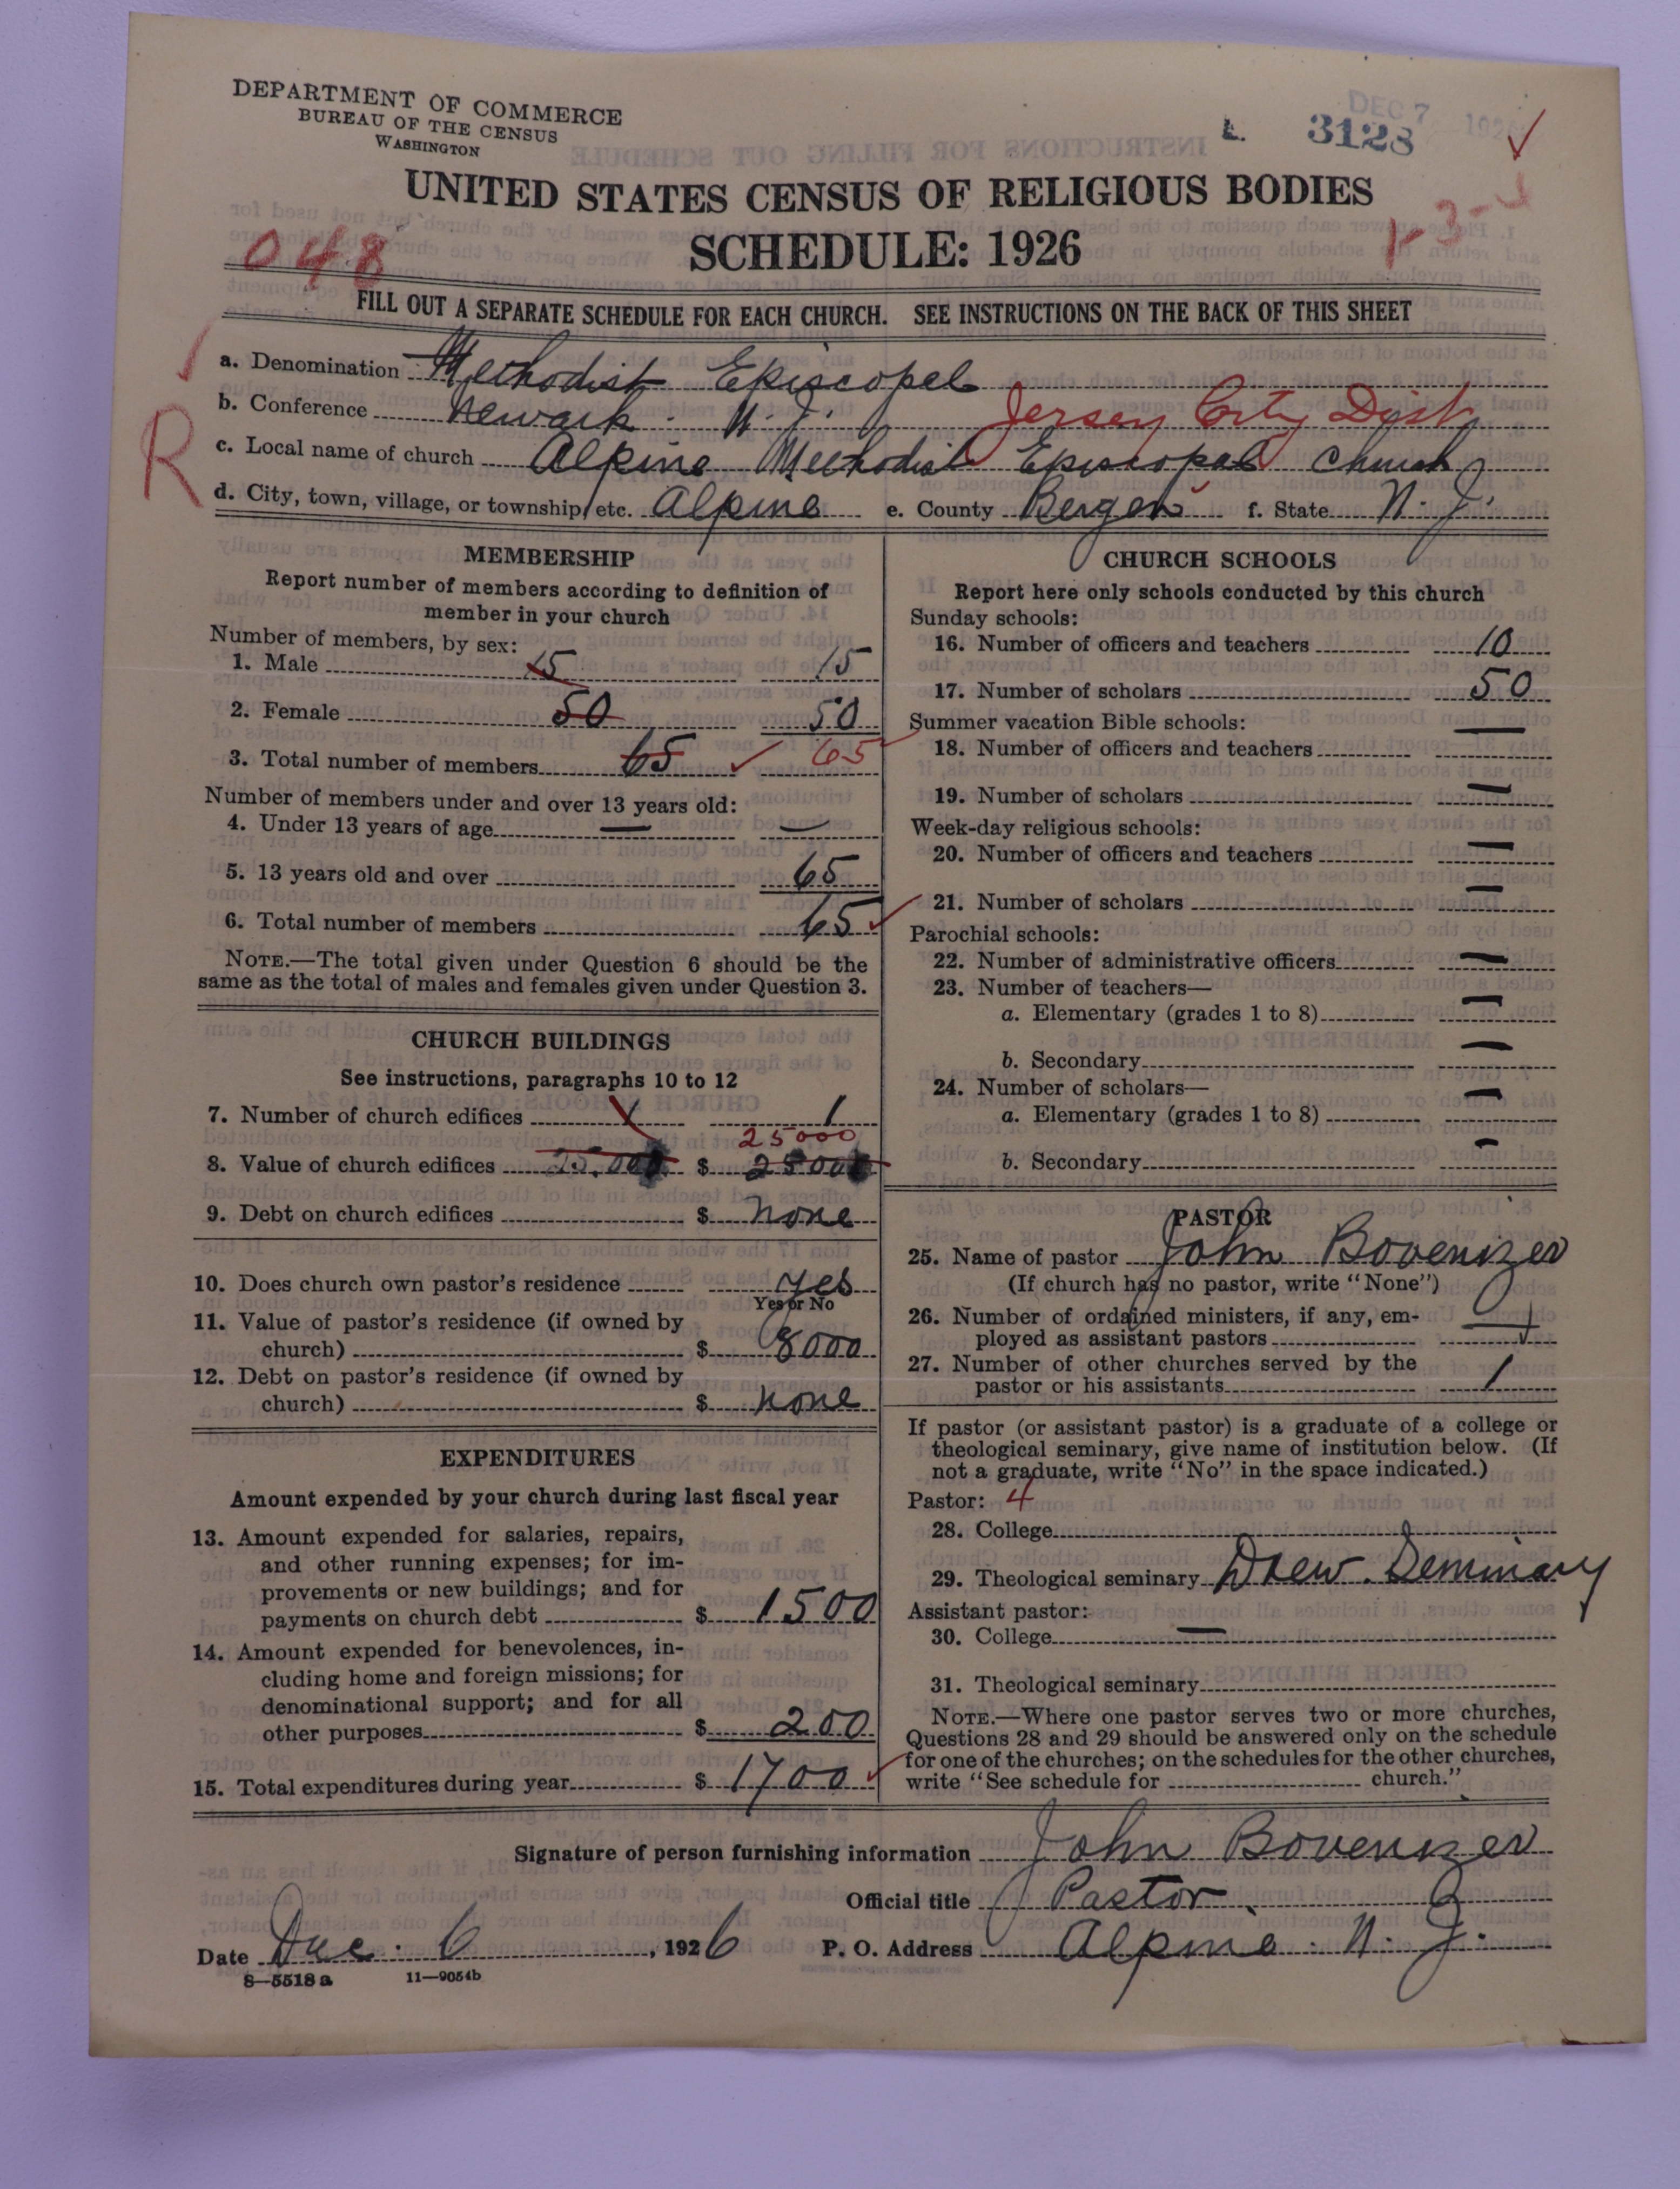 DEPARTMENT OF COMMERCE
BUREAU OF THE CENSUS
WASHINGTON
DEC 7 1926
3128
UNITED STATES CENSUS OF RELIGIOUS BODIES
SCHEDULE: 1926
048
1-3-4
FILL OUT A SEPARATE SCHEDULE FOR EACH CHURCH. SEE INSTRUCTIONS ON THE BACK OF THIS SHEET
R
a. Denomination Methodist Episcopal
b. Conference Newark. N. J. Jersey City Dist
c. Local name of church Alpine Methodist Episcopal Church
d. City, town, village, or township, etc. Alpine e. County Bergen f. State N. J.
MEMBERSHIP
Report number of members according to definition of
member in your church
Number of members, by sex:
1. Male 15 15
2. Female 50 50
3. Total number of members 65 65
Number of members under and over 13 years old:
4. Under 13 years of age — —
5. 13 years old and over 65
6. Total number of members 65
NOTE.—The total given under Question 6 should be the
same as the total of males and females given under Question 3.
CHURCH BUILDINGS
See instructions, paragraphs 10 to 12
7. Number of church edifices 1 1
25000
8. Value of church edifices 25,000 $ 25000
9. Debt on church edifices $ none
10. Does church own pastor's residence yes
Yes or No
11. Value of pastor's residence (if owned by
church) $ 8000
12. Debt on pastor's residence (if owned by
church) $ none
EXPENDITURES
Amount expended by your church during last fiscal year
13. Amount expended for salaries, repairs,
and other running expenses; for im-
provements or new buildings; and for
payments on church debt $ 1500
14. Amount expended for benevolences, in-
cluding home and foreign missions; for
denominational support; and for all
other purposes $ 200
15. Total expenditures during year $ 1700
CHURCH SCHOOLS
Report here only schools conducted by this church
Sunday schools:
16. Number of officers and teachers 10
17. Number of scholars 50
Summer vacation Bible schools:
18. Number of officers and teachers —
19. Number of scholars —
Week-day religious schools:
20. Number of officers and teachers —
21. Number of scholars —
Parochial schools:
22. Number of administrative officers —
23. Number of teachers—
a. Elementary (grades 1 to 8) —
b. Secondary —
24. Number of scholars—
a. Elementary (grades 1 to 8) —
b. Secondary —
PASTOR
25. Name of pastor John Bovenizer
(If church has no pastor, write "None")
26. Number of ordained ministers, if any, em-
ployed as assistant pastors —
27. Number of other churches served by the
pastor or his assistants 1
If pastor (or assistant pastor) is a graduate of a college or
theological seminary, give name of institution below. (If
not a graduate, write "No" in the space indicated.)
Pastor: 4
28. College
29. Theological seminary Drew. Seminary
Assistant pastor:
30. College —
31. Theological seminary
NOTE.—Where one pastor serves two or more churches,
Questions 28 and 29 should be answered only on the schedule
for one of the churches; on the schedules for the other churches,
write "See schedule for church."
Signature of person furnishing information John Bovenizer
Official title Pastor
Date Dec. 6, 1926 P. O. Address Alpine. N. J.
8—5518 a 11—9054b